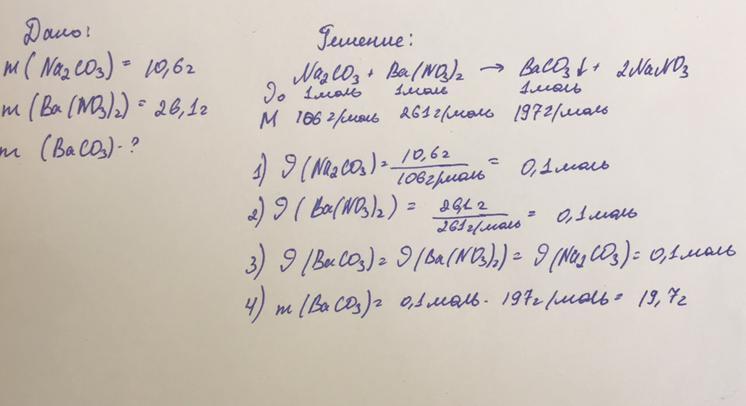 Дано:
m (Na₂CO₃) = 10,6г
m (Ba(NO₃)₂) = 26,1г
m (BaCO₃) - ?
Решение:
Na₂CO₃ + Ba(NO₃)₂ → BaCO₃↓ + 2NaNO₃
υ₀ 1моль 1моль 1моль
M 106г/моль 261г/моль 197г/моль
1) υ(Na₂CO₃) = 10,6г / 106г/моль = 0,1моль
2) υ(Ba(NO₃)₂) = 26,1г / 261г/моль = 0,1моль
3) υ(BaCO₃) = υ(Ba(NO₃)₂) = υ(Na₂CO₃) = 0,1моль
4) m(BaCO₃) = 0,1моль · 197г/моль = 19,7г